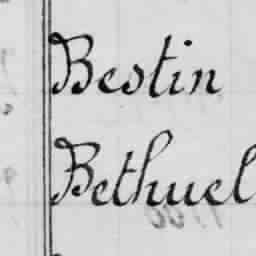 Bestin
Bethuel